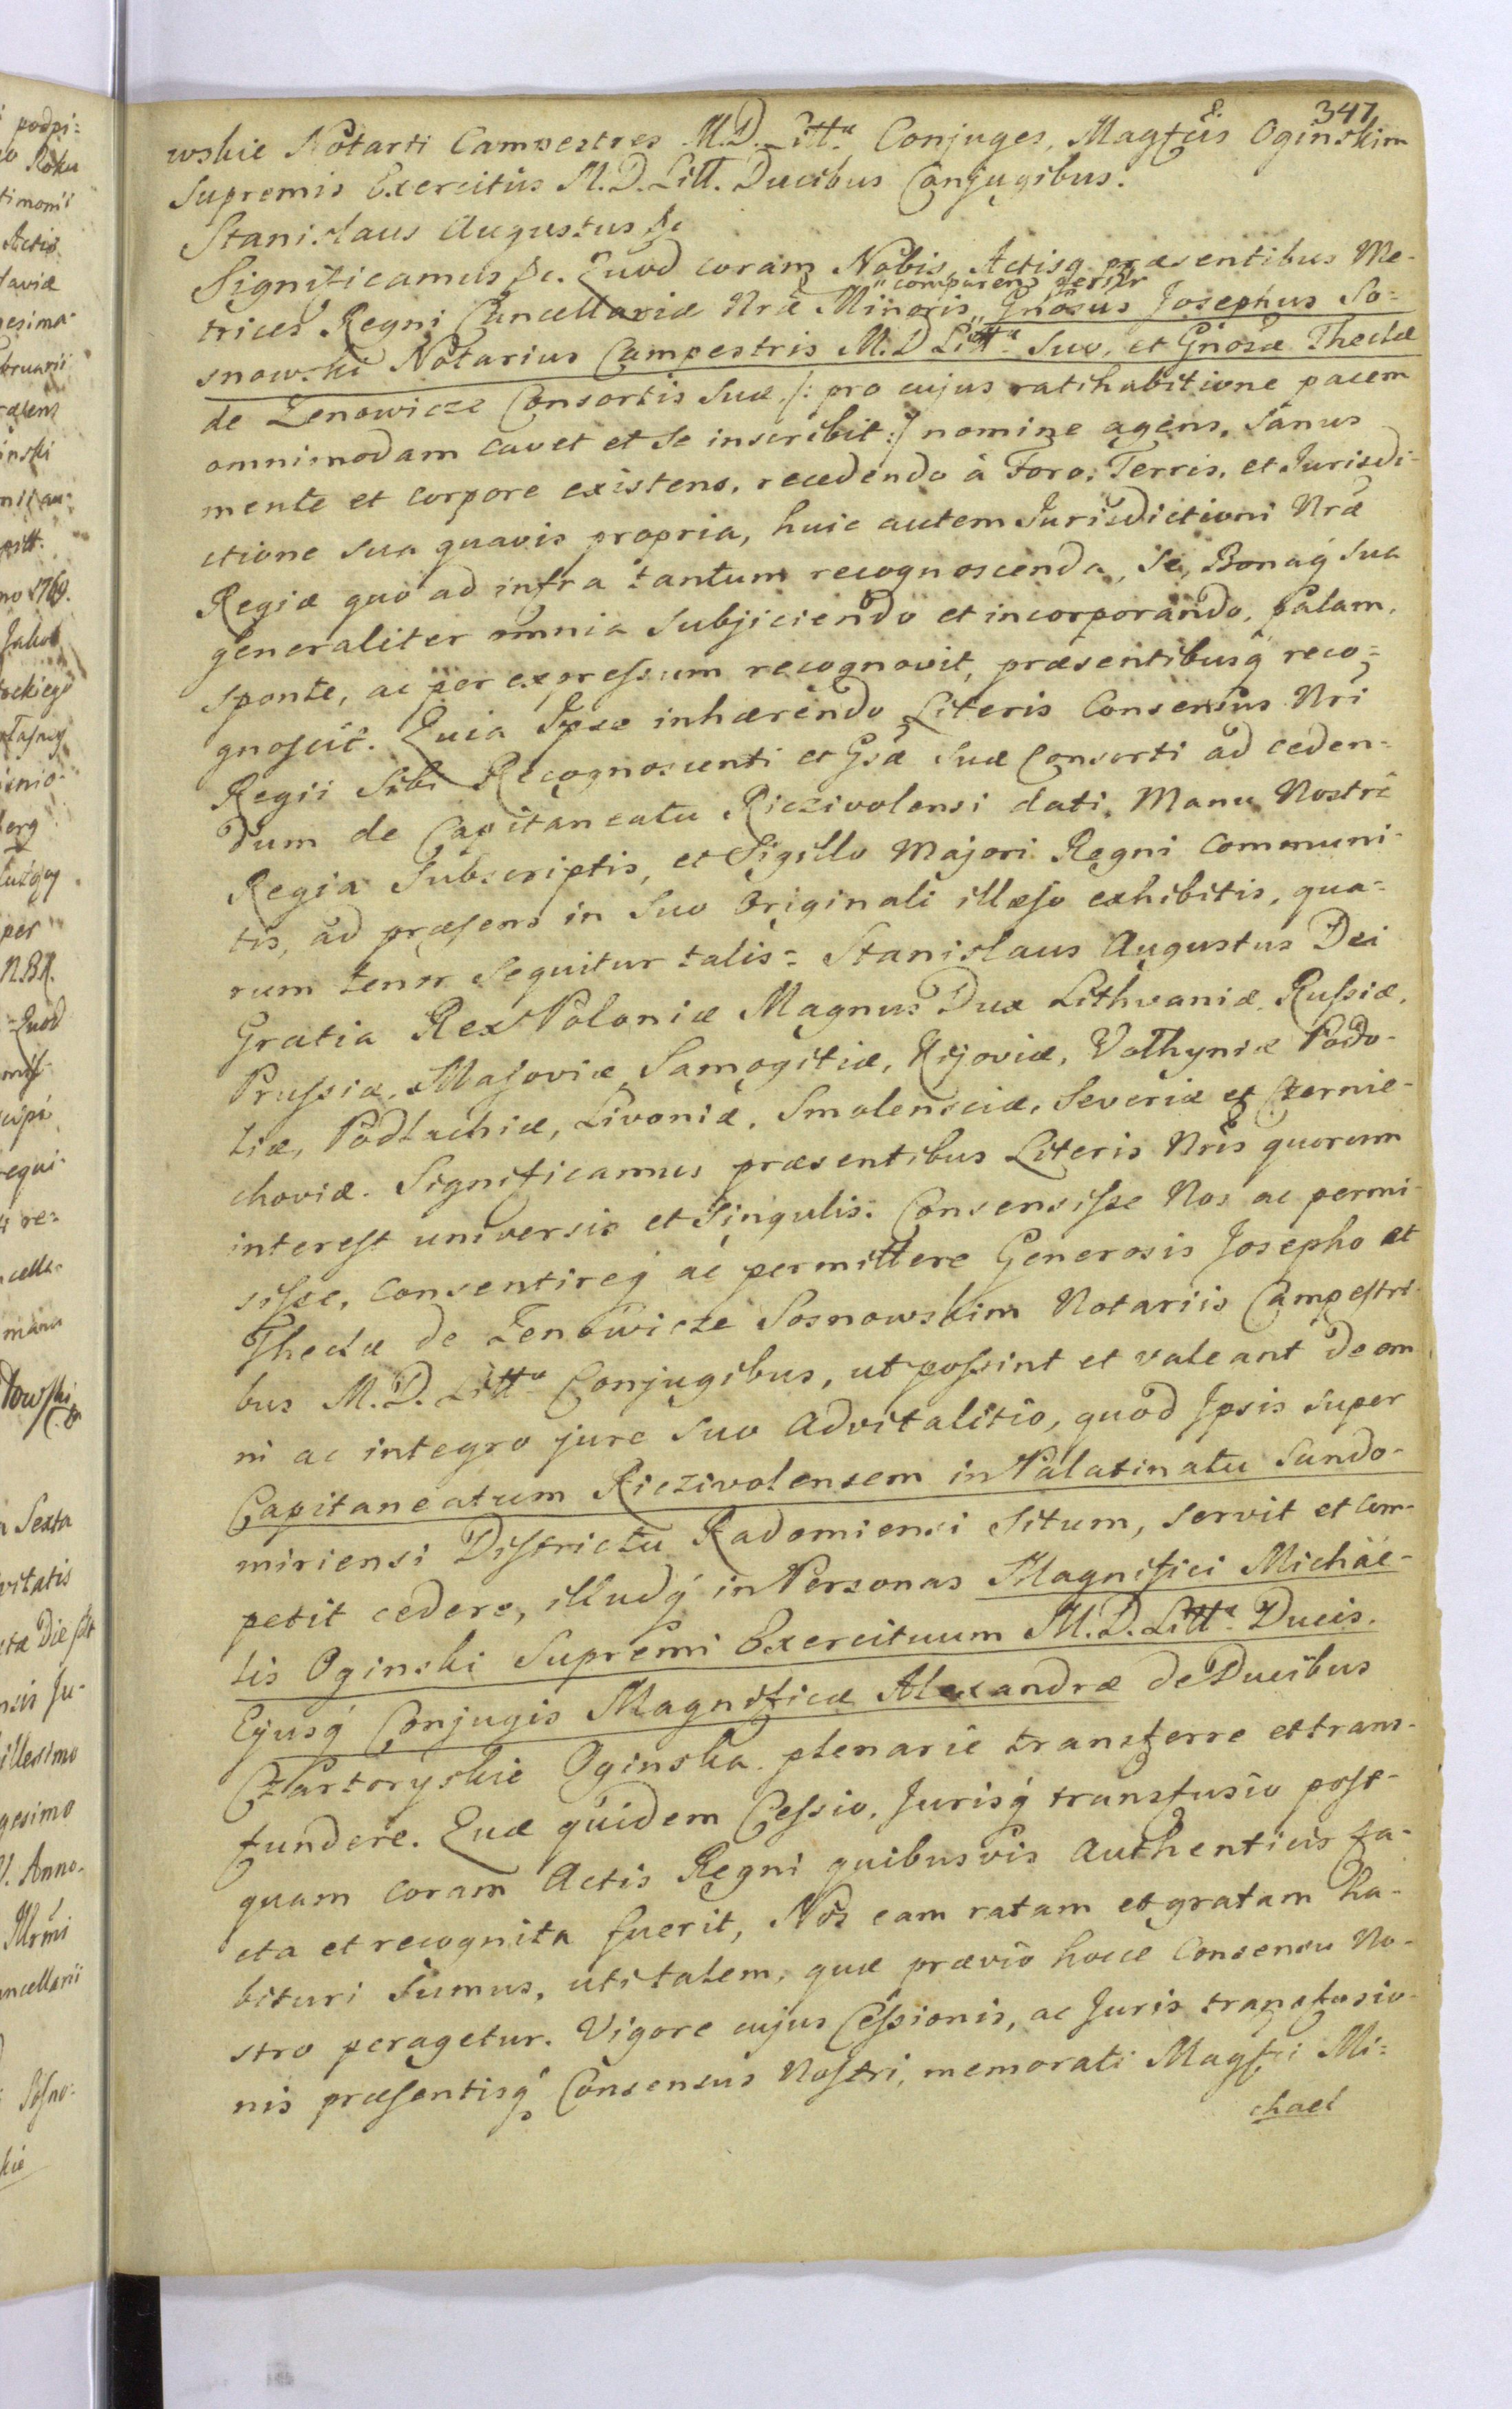 347
8.
wskie Notarii Campestres M.D. Litt.ae Conjuges, Magfcis Oginskim
Supremis Exercitus M.D. Litt. Ducibus Conjugibus.
Stanislaus Augustus &c
Significamus &c. Quod coram Nobis, Actisq præsentibus Me-
comparens perslr
trices Regni Cancellariæ Nræ Minoris,, Gnosus Josephus So=
snowski Notarius Campestris M.D Litt.ae Suo, et Gnosæ Theclæ
de Zenowicze Consortis Suæ /: pro cujus ratihabitione pacem
omnimodam cavet et Se inscribit :/ nomine agens, Sanus
mente et corpore existens, recedendo à Foro, Terris, et Jurisdi-
ctione sua quavis propria, huic autem Jurisdictioni Nræ
Regiæ quo ad infra tantum recognoscenda, Se, Bonaq sua
generaliter omnia Subjiciendo et incorporando, palam,
sponte, ac per expressum recognovit, præsentibusq reco=
gnoscit. Quia Ipse inhærendo Literis Consensus Nri
Regii Sibi Recognoscenti et Gsæ Suæ Consorti ad ceden=
dum de Capitaneatu Riczivolensi dati, Manu Nostrâ
Regia Subscriptis, et Sigillo Majori Regni Communi-
tis, ad præsens in Suo Originali illæso exhibitis, qua-
rum tenor Sequitur talis= Stanislaus Augustus Dei
Gratia Rex Poloniæ Magnus Dux Lithvaniæ, Russiæ,
Prussiæ, Masoviæ, Samogitiæ, Kijoviæ, Volhyniæ Podo-
liæ, Podlachiæ, Livoniæ, Smolensciæ, Severiæ et Czernie-
choviæ. Significamus præsentibus Literis Nris quorum
interest universis et Singulis. Consensisse Nos ac permi-
sisse, Consentireq ac permittere Generosis Josepho et
Theclæ de Zenowicze Sosnowskim Notariis Campestri-
bus M.D. Litt.ae Conjugibus, ut possint et valeant de om
ni ac integro jure Suo Advitalitio, quod Ipsis super
Capitaneatum Riczivolensem in Palatinatu Sando-
miriensi Districtu Radomiensi Situm, servit et com-
petit cedere, illudq in Personas Magnifici Michäe-
lis Oginski Supremi Exercituum M.D. Litt.ae Ducis.
Ejusq Conjugis Magnificæ Alexandræ de Ducibus
Czartoryskie Oginska. plenarie transferre et trans-
fundere. Quæ quidem Cessio, Jurisq transfusio post-
quam coram Actis Regni quibusvis Authenticis fa-
cta et recognita fuerit, Nos eam ratam et gratam ha-
bituri Sumus, uti talem, quæ prævio hocce Consensu No-
stro peragetur. Vigore cujus Cessionis, ac Juris transfusio-
nis præsentisq Consensus Nostri, memorati Magfci Mi=
chael